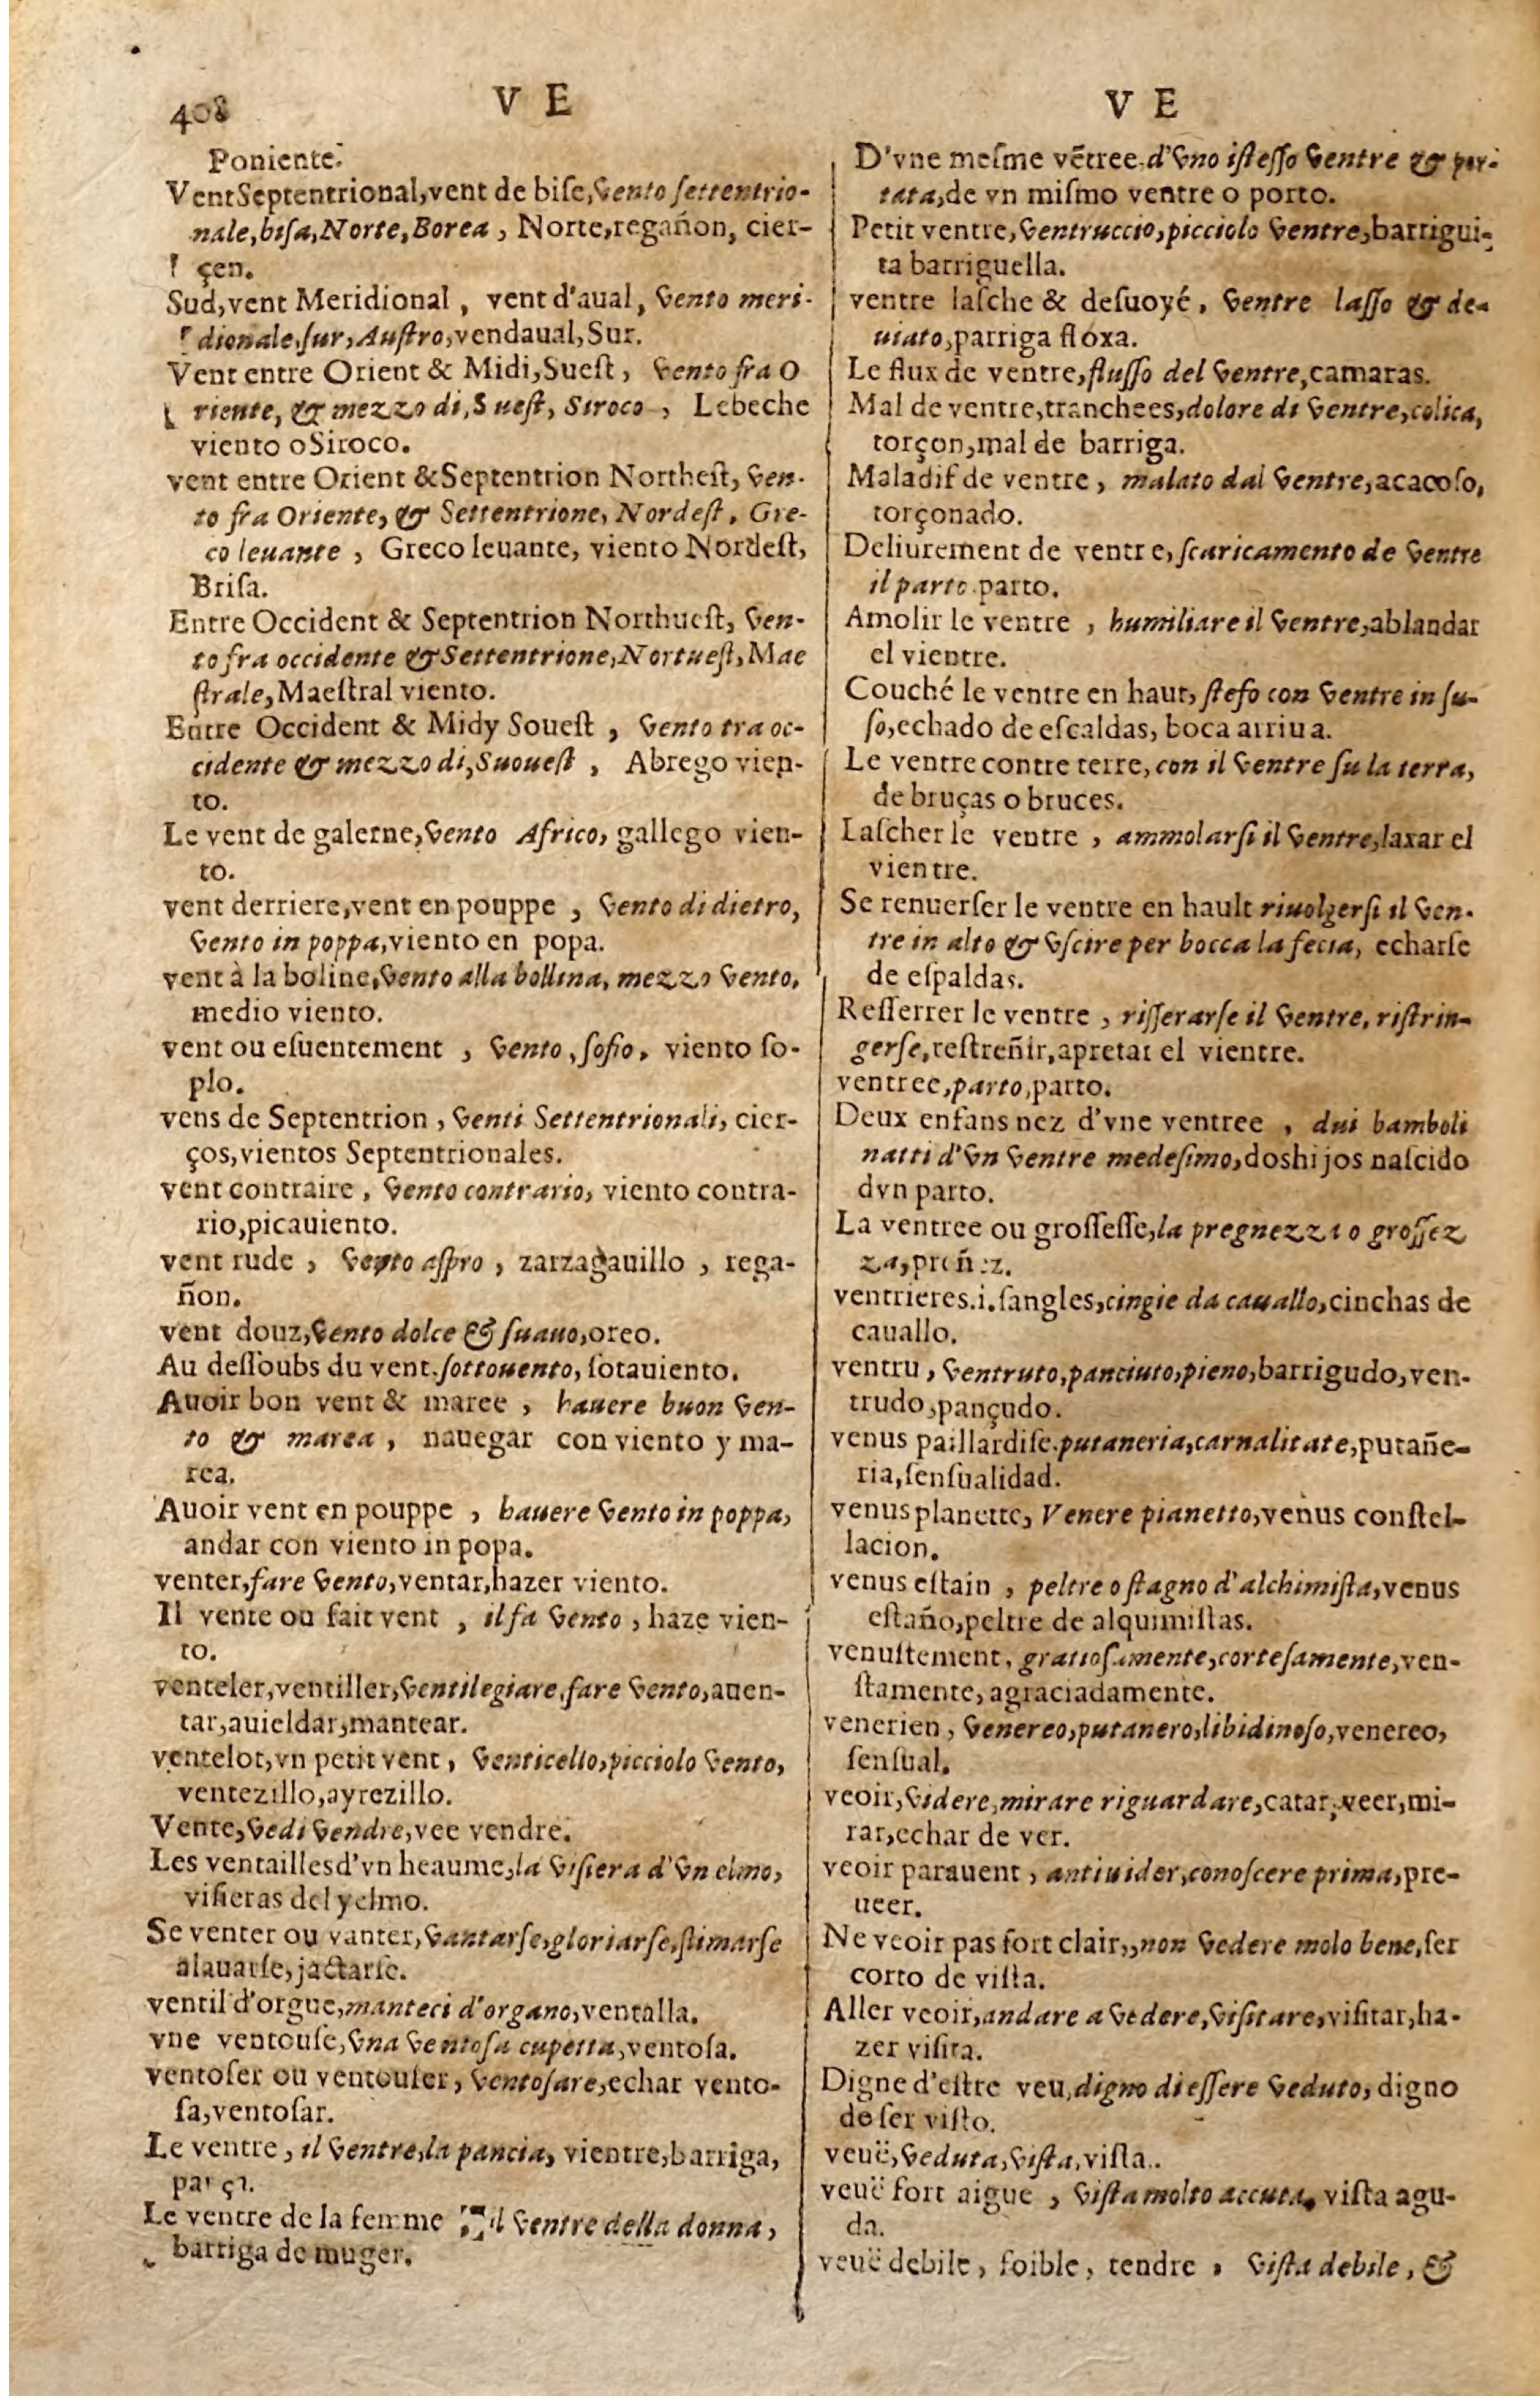 408
V E
Poniente.
Vent Septentrional, vent de bise, vento settentrio-
nale, bisa, Norte, Borea, Norte, regañon, cier-
çen.
Sud, vent Meridional, vent d'aual, vento meri-
dionale, sur, Austro, vendaual, Sur.
Vent entre Orient & Midi, Suest, vento fra O
riente, & mezzo di, Suest, Siroco, Lebeche
viento o Siroco.
vent entre Orient & Septentrion Northest, ven-
to fra Oriente, & Settentrione, Nordest, Gre-
co leuante, Greco leuante, viento Nordest,
Brisa.
Entre Occident & Septentrion Northuest, ven-
to fra occidente & Settentrione, Nortuest, Mae
strale, Maestral viento.
Entre Occident & Midy Souest, vento tra oc-
cidente & mezzo di, Suouest, Abrego vien-
to.
Le vent de galerne, vento Africo, gallego vien-
to.
vent derriere, vent en pouppe, vento di dietro,
vento in poppa, viento en popa.
vent à la boline, vento alla bollina, mezzo vento,
medio viento.
vent ou esuentement, vento, sofio, viento so-
plo.
vens de Septentrion, venti Settentrionali, cier-
ços, vientos Septentrionales.
vent contraire, vento contrario, viento contra-
rio, picauiento.
vent rude, vento aspro, zarzagauillo, rega-
ñon.
vent douz, vento dolce & suauo, oreo.
Au dessoubs du vent. sottouento, sotauiento.
Auoir bon vent & maree, hauere buon ven-
to & marea, nauegar con viento y ma-
rea.
Auoir vent en pouppe, hauere vento in poppa,
andar con viento in popa.
venter, fare vento, ventar, hazer viento.
Il vente ou fait vent, il fa vento, haze vien-
to.
venteler, ventiller, ventilegiare, fare vento, auen-
tar, auieldar, mantear.
ventelot, vn petit vent, venticello, picciolo vento,
ventezillo, ayrezillo.
Vente, vedi vendre, vee vendre.
Les ventailles d'vn heaume, la visiera d'vn elmo,
visieras del yelmo.
Se venter ou vanter, vantarse, gloriarse, stimarse
alauarse, jactarse.
ventil d'orgue, manteci d'organo, ventalla.
vne ventouse, vna ventosa cupetta, ventosa.
ventoser ou ventouser, ventosare, echar vento-
sa, ventosar.
Le ventre, il ventre, la pancia, vientre, barriga,
Le ventre de la femme il ventre della donna,
barriga de muger.
V E
D'vne mesme vẽtree. d'vno istesso ventre & por-
tata, de vn mismo ventre o porto.
Petit ventre, ventruccio, picciolo ventre, barrigui-
ta barriguella.
ventre lasche & desuoyé, ventre lasso & de-
uiato, parriga floxa.
Le flux de ventre, flusso del ventre, camaras.
Mal de ventre, tranchees, dolore di ventre, colica,
torçon, mal de barriga.
Maladif de ventre, malato dal ventre, acacoso,
torçonado.
Deliurement de ventre, scaricamento de ventre
il parto. parto.
Amolir le ventre, humiliare il ventre, ablandar
el vientre.
Couché le ventre en haut, steso con ventre in su-
so, echado de escaldas, boca arriua.
Le ventre contre terre, con il ventre su la terra,
de bruças o bruces.
Lascher le ventre, ammolarsi il ventre, laxar el
vientre.
Se renuerser le ventre en hault riuolgersi il ven-
tre in alto & vscire per bocca la fecia, echarse
de espaldas.
Resserrer le ventre, risserarse il ventre, ristrin-
gerse, restreñir, apretar el vientre.
ventree, parto, parto.
Deux enfans nez d'vne ventree, dui bamboli
natti d'vn ventre medesimo, dos hijos nascido
dvn parto.
La ventree ou grossesse, la pregnezza o grossez
za, preñez.
ventrieres .i. sangles, cingie da cauallo, cinchas de
cauallo.
ventru, ventruto, panciuto, pieno, barrigudo, ven-
trudo, pançudo.
venus paillardise. putaneria, carnalitate, putañe-
ria, sensualidad.
venus planette, Venere pianetto, venus constel-
lacion.
venus estain, peltre o stagno d'alchimista, venus
estaño, peltre de alquimistas.
venustement, gratiosamente, cortesamente, ven-
stamente, agraciadamente.
venerien, venereo, putanero, libidinoso, venereo,
sensual.
veoir, videre, mirare riguardare, catar, veer, mi-
rar, echar de ver.
veoir parauent, antiuider, conoscere prima, pre-
ueer.
Ne veoir pas fort clair,, non vedere molo bene, ser
corto de vista.
Aller veoir, andare a vedere, visitare, visitar, ha-
zer visita.
Digne d'estre veu, digno di essere veduto, digno
de ser visto.
veuë, veduta, vista, vista..
veuë fort aigue, vista molto accuta, vista agu-
da.
veuë debile, foible, tendre, vista debile, &